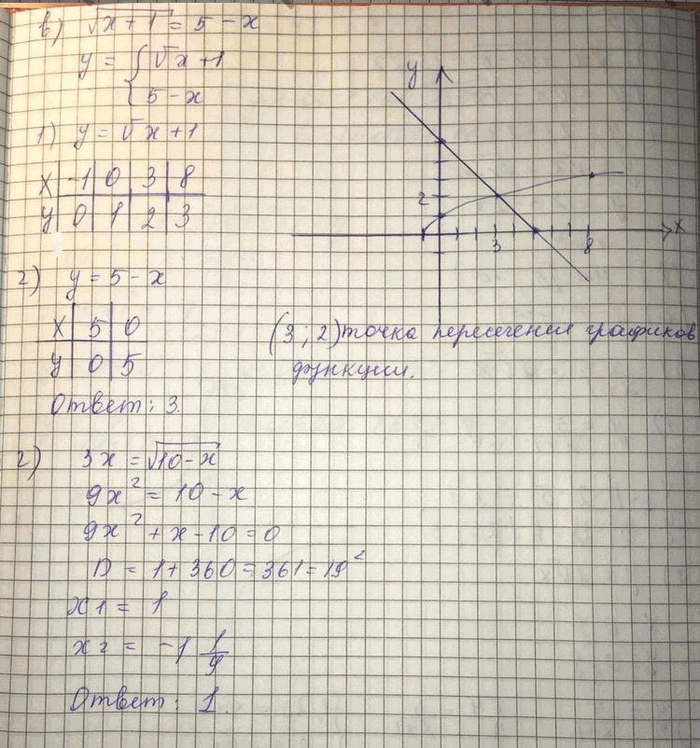 в) √(x+1) = 5 - x
y = { √x+1
5 - x
1) y = √x+1
x | -1 | 0 | 3 | 8
y | 0 | 1 | 2 | 3
2) y = 5 - x
x | 5 | 0
y | 0 | 5
y
2
3
8
x
(3; 2) точка пересечения графиков
функции.
Ответ: 3.
г) 3x = √(10-x)
9x² = 10 - x
9x² + x - 10 = 0
D = 1 + 360 = 361 = 19²
x1 = 1
x2 = -1 1/9
Ответ: 1.